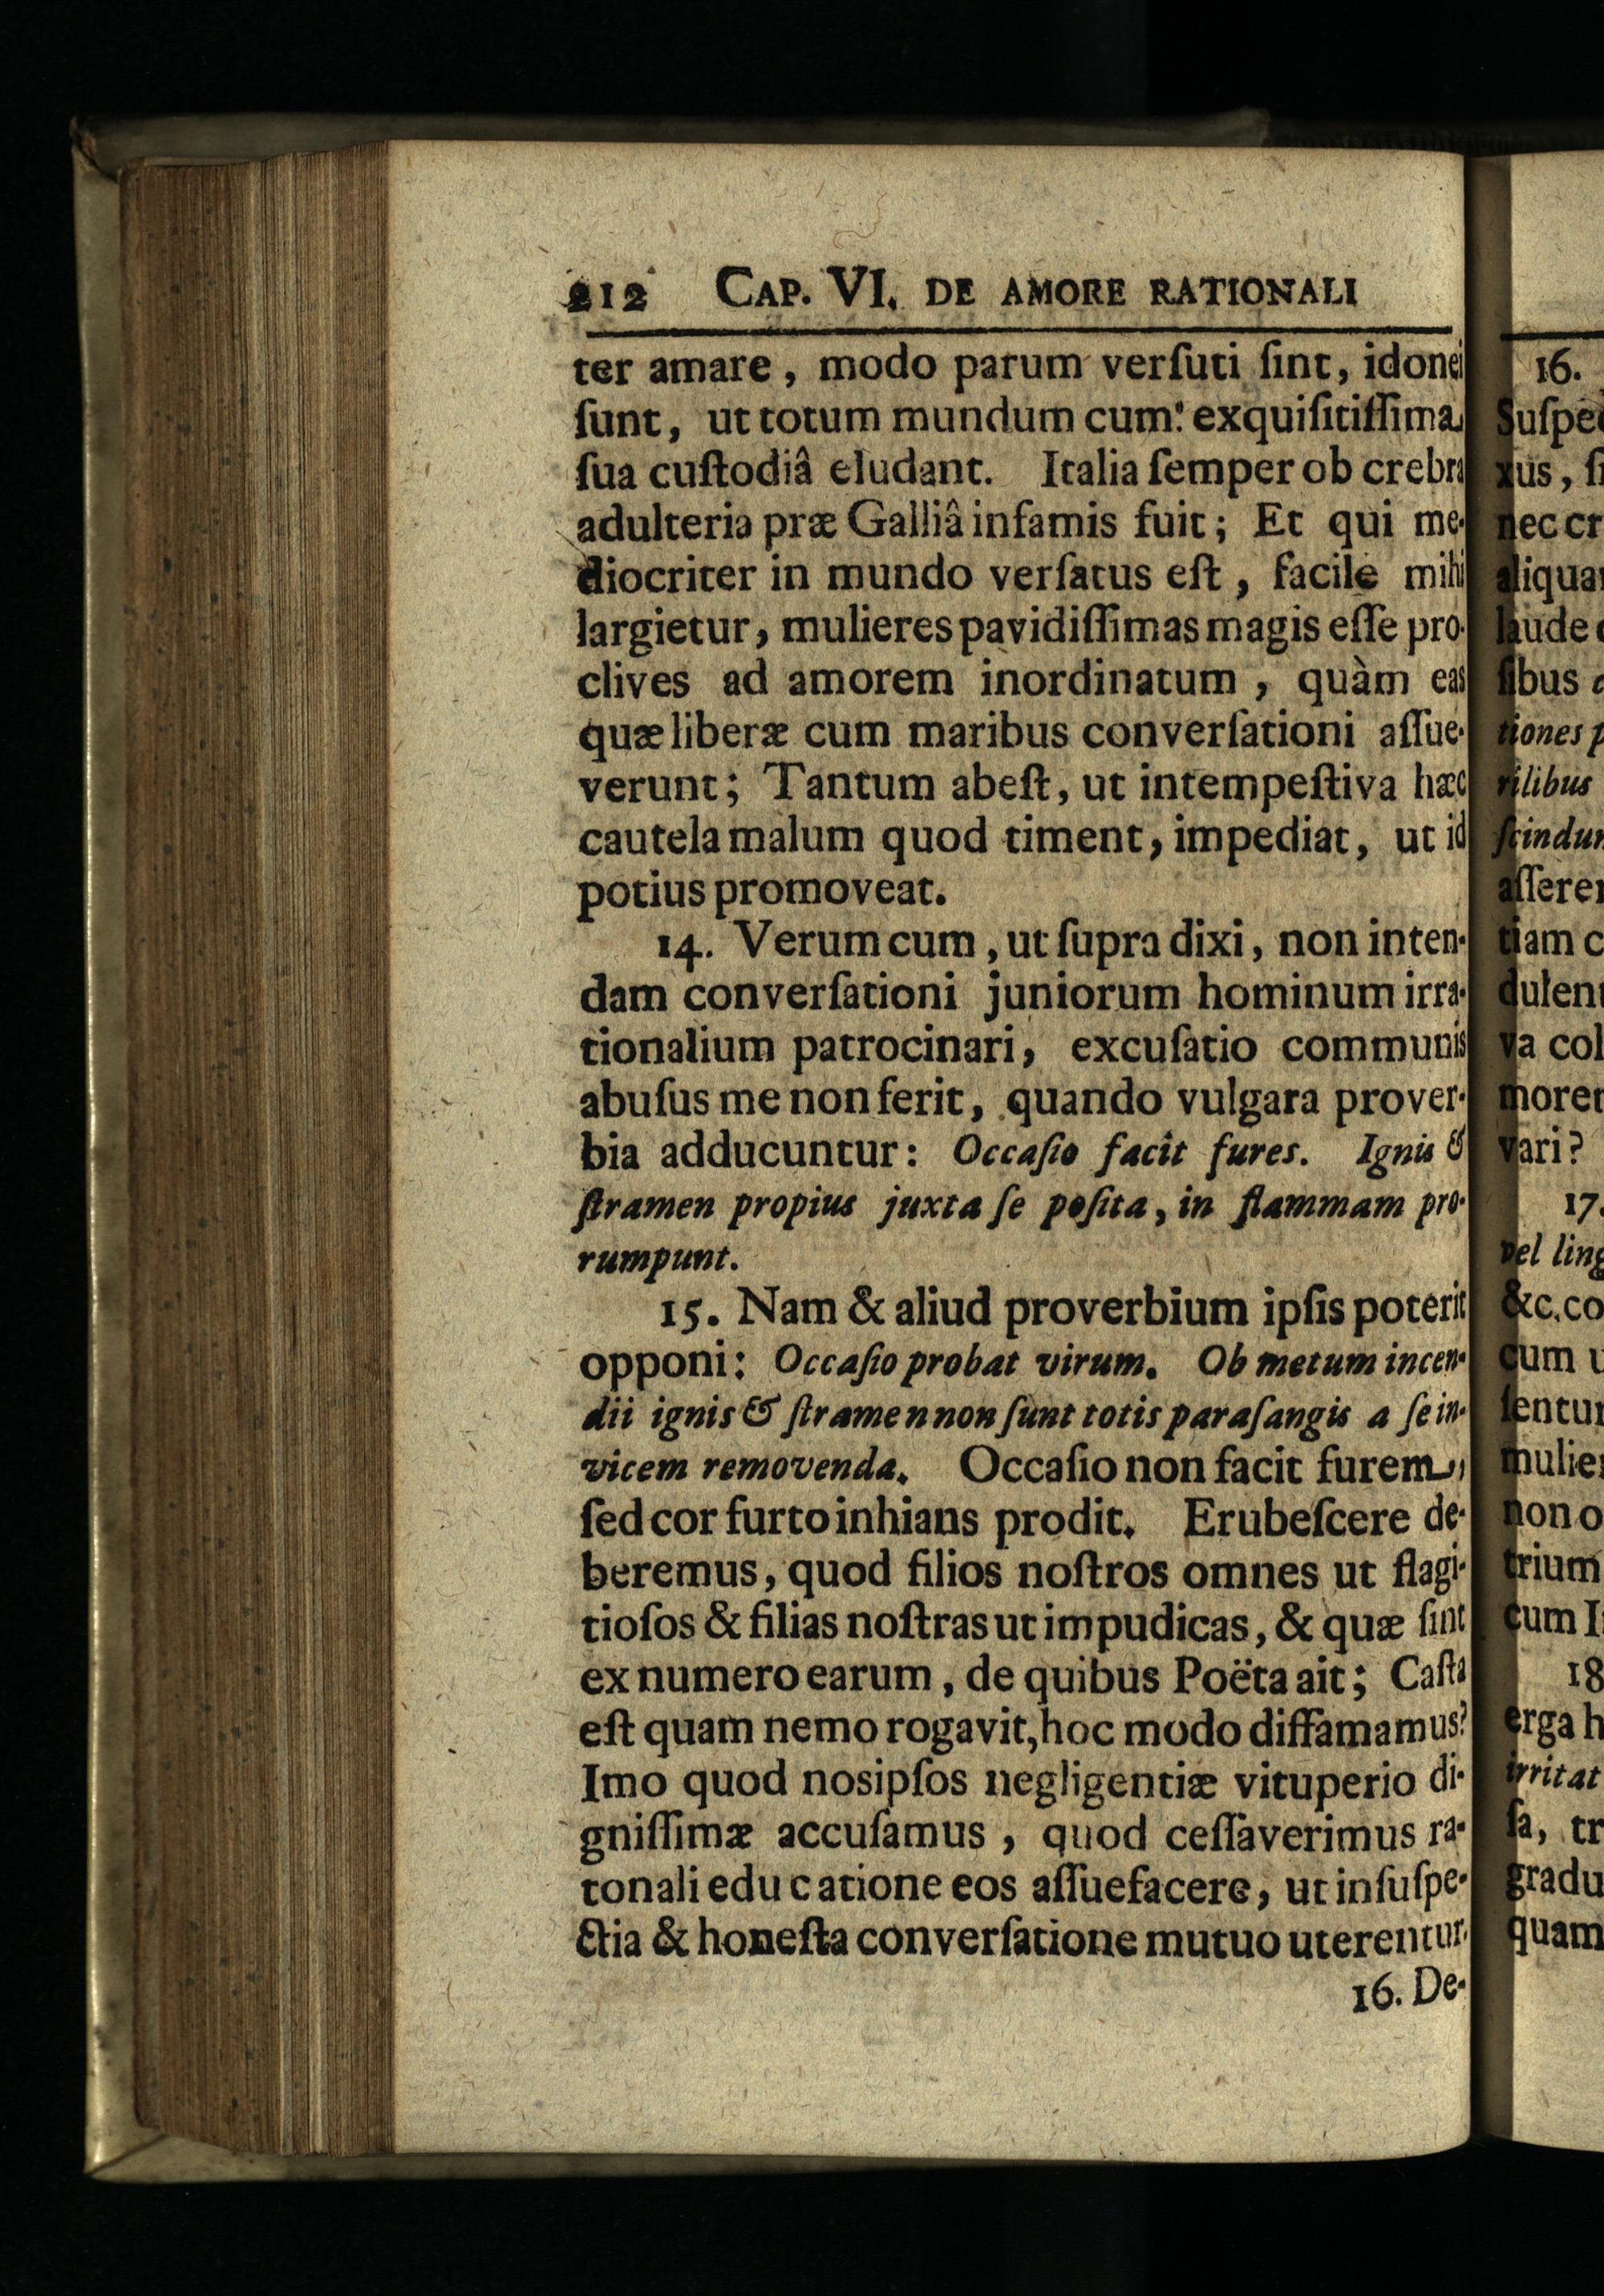 212 CAP. VI. DE AMORE RATIONALI
ter amare, modo parum verſuti ſint, idonei
ſunt, ut totum mundum cum exquiſitiſſima
ſua cuſtodiâ eludant. Italia ſemper ob crebra
adulteria præ Galliâ infamis fuit; Et qui me-
diocriter in mundo verſatus eſt, facile mihi
largietur, mulieres pavidiſſimas magis eſſe pro-
clives ad amorem inordinatum, quàm eas
quæ liberæ cum maribus converſationi aſſue-
verunt; Tantum abeſt, ut intempeſtiva hæc
cautela malum quod timent, impediat, ut id
potius promoveat.
14. Verum cum, ut ſupra dixi, non inten-
dam converſationi juniorum hominum irra-
tionalium patrocinari, excuſatio communis
abuſus me non ferit, quando vulgara prover-
bia adducuntur: Occaſio facit fures. Ignis &
ſtramen propius juxta ſe poſita, in flammam pro-
rumpunt.
15. Nam & aliud proverbium ipſis poterit
opponi: Occaſio probat virum. Ob metum incen-
dii ignis & ſtramen non ſunt totis paraſangis a ſe in-
vicem removenda. Occaſio non facit furem,
ſed cor furto inhians prodit. Erubeſcere de-
beremus, quod filios noſtros omnes ut flagi-
tioſos & filias noſtras ut impudicas, & quæ ſint
ex numero earum, de quibus Poëta ait; Caſta
eſt quam nemo rogavit, hoc modo diffamamus?
Imo quod nosipſos negligentiæ vituperio di-
gniſſimæ accuſamus, quod ceſſaverimus ra-
tonali educatione eos aſſuefacere, ut inſuſpe-
ctia & honeſta converſatione mutuo uterentur.
16. De-
16.
Suſpec
xus, ſi
nec cr
aliqua
laude
ſibus
tiones p
rilibus
ſcindun
aſſere
tiam c
dulen
va col
more
vari?
17.
vel ling
&c. co
cum u
ſentur
mulie
non o
trium
cum I
18
erga h
irritat
ſa, tr
gradu
quam